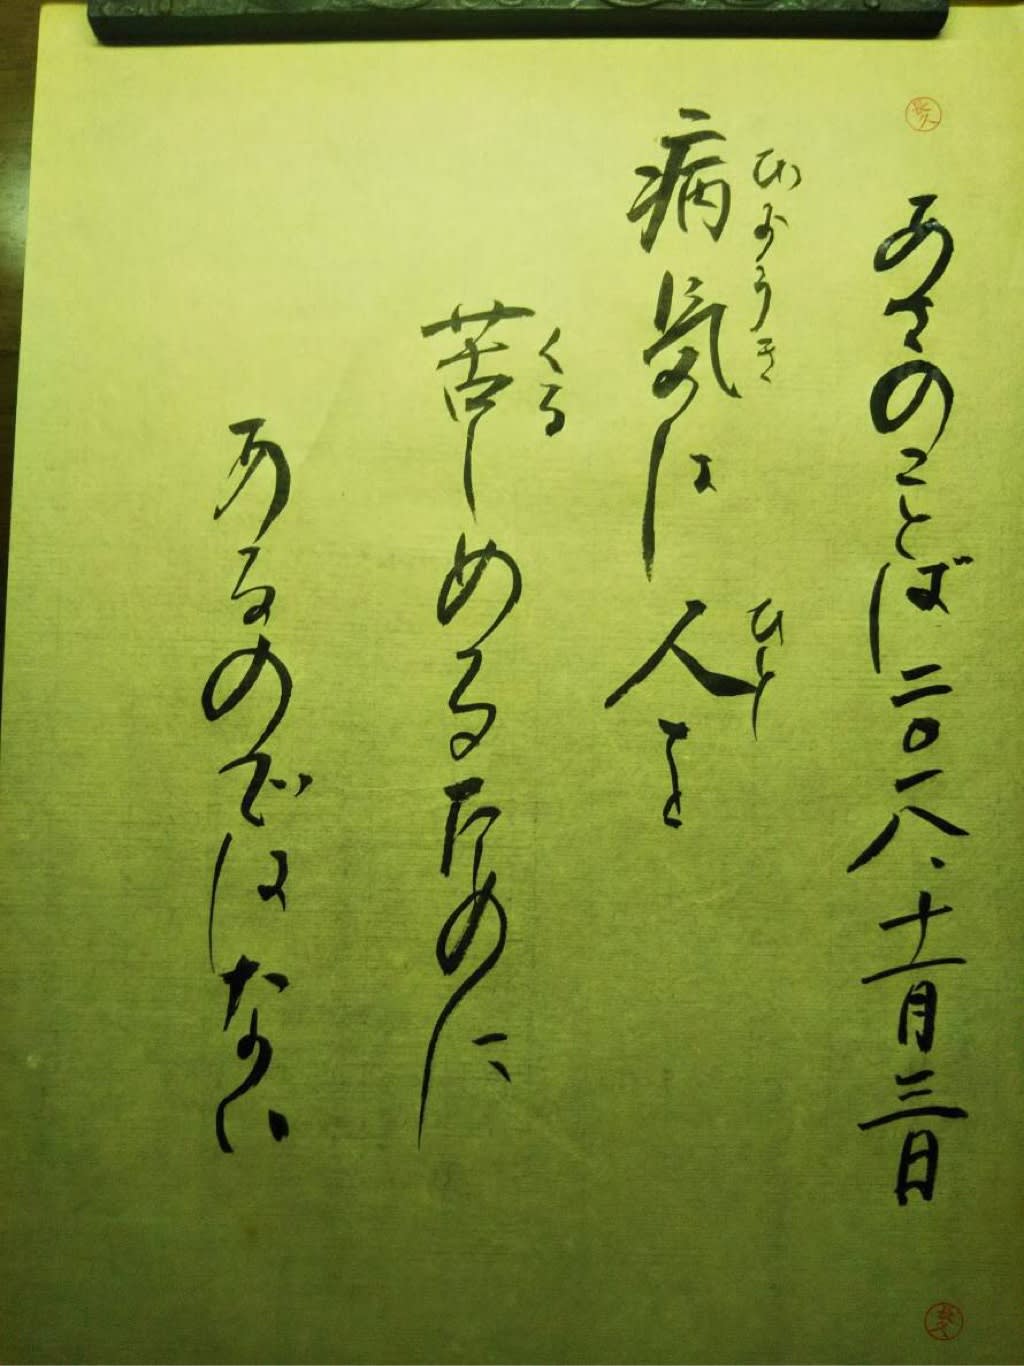 あさのことば 二〇一八、十一月三日
ひょうき
ひと
病気は人を
くる
苦しめるために
あるのではない